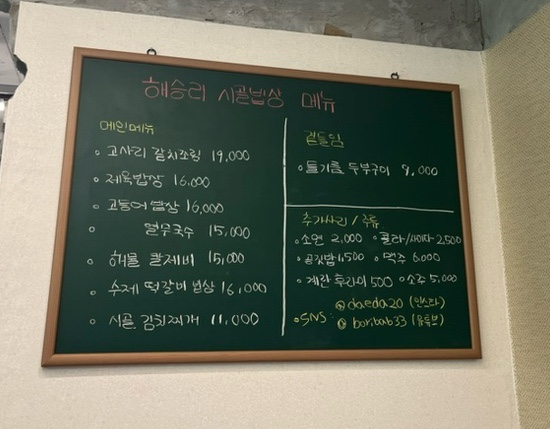 해승리 시골밥상 메뉴
메인메뉴
고사리 갈치조림 19,000
제육밥상 16,000
고등어 밥상 16,000
열무국수 15,000
해물 칼제비 15,000
수제 떡갈비 밥상 16,000
시골 김치찌개 11,000
곁들임
들기름 두부구이 9,000
추가사리 / 주류
소면 2,000
콜라/사이다 2,500
공깃밥 1,500
맥주 6,000
계란 후라이 500
소주 5,000
SNS: @daeda20 (인스타)
@boribab33 (유튜브)